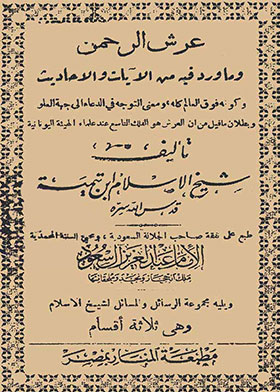 عرش الرحمن
وما ورد فيه من الآيات والأحاديث
وكونه فوق العالم كله، ومعنى التوجه في الدعاء الى جهة العلو
وبطلان ما قيل من ان العرش هو الفلك التاسع عند علماء الهيئة اليونانية
تأليف
شيخ الإسلام ابن تيمية
قدس الله سره
طبع على نفقة صاحب الجلالة السعودية، ومحيي السنة المحمدية
الإمام عبد العزيز آل سعود
ملك الحجاز ونجد وملحقاتها
ويليه مجموعة الرسائل والمسائل لشيخ الاسلام
وهي ثلاثة أقسام
مطبعة المنار بمصر